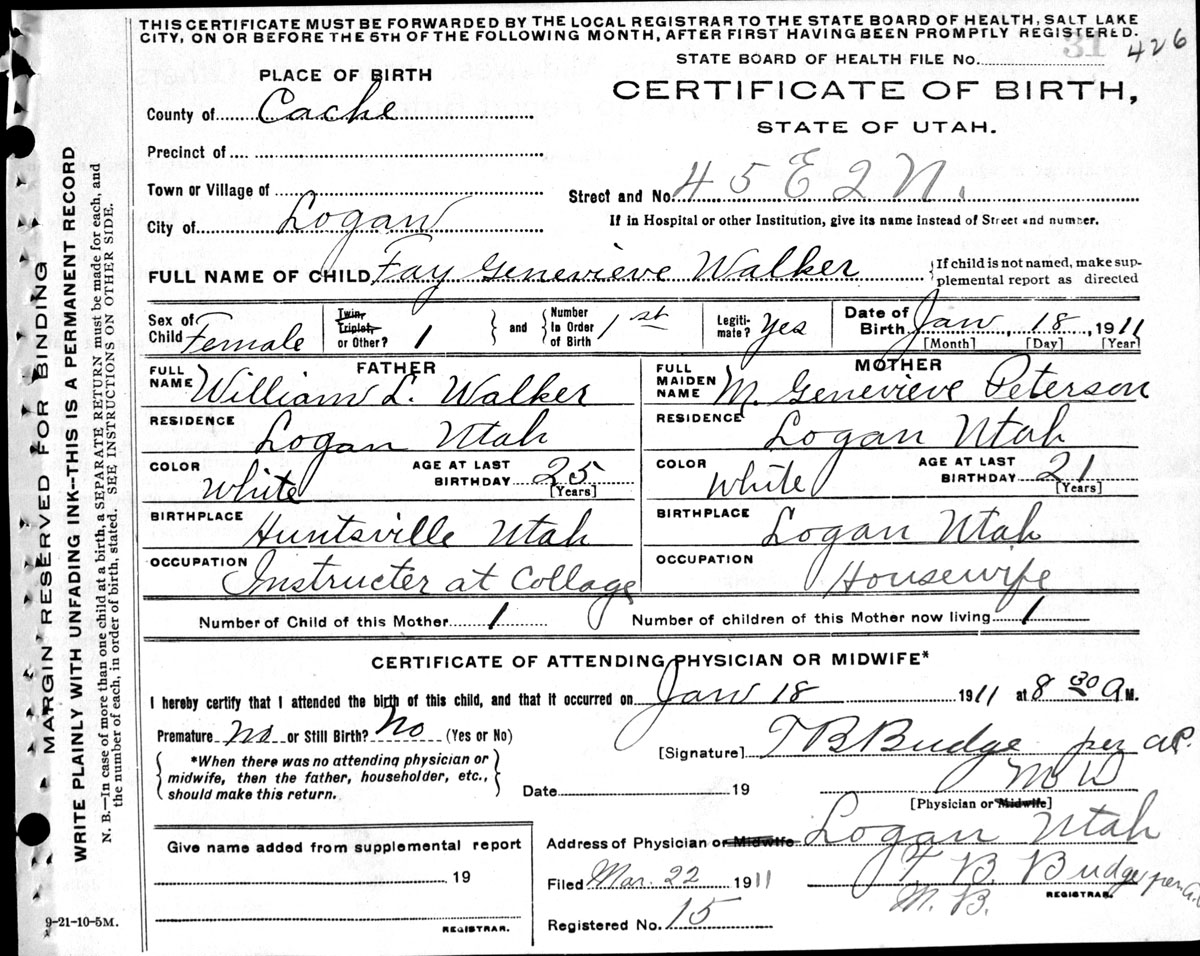 THIS CERTIFICATE MUST BE FORWARDED BY THE LOCAL REGISTRAR TO THE STATE BOARD OF HEALTH, SALT LAKE
CITY, ON OR BEFORE THE 5TH OF THE FOLLOWING MONTH, AFTER FIRST HAVING BEEN PROMPTLY REGISTERED.
31
426
STATE BOARD OF HEALTH FILE No.
PLACE OF BIRTH
CERTIFICATE OF BIRTH,
STATE OF UTAH.
County of Cache
Precinct of
Town or Village of
Street and No. 45 E 2 N.
City of Logan
If in Hospital or other Institution, give its name instead of Street and number.
FULL NAME OF CHILD Fay Genevieve Walker
{If child is not named, make sup-
plemental report as directed
Sex of Child Female
Twin, Triplet, or Other? 1
and
Number In Order of Birth 1st
Legiti- mate? Yes
Date of Birth Jan 18, 1911
[Month] [Day] [Year]
FATHER
FULL NAME William L. Walker
RESIDENCE Logan Utah
COLOR White
AGE AT LAST BIRTHDAY 25
[Years]
BIRTHPLACE Huntsville Utah
OCCUPATION Instructer at Collage
MOTHER
FULL MAIDEN NAME M. Genevieve Peterson
RESIDENCE Logan Utah
COLOR White
AGE AT LAST BIRTHDAY 21
[Years]
BIRTHPLACE Logan Utah
OCCUPATION Housewife
Number of Child of this Mother 1
Number of children of this Mother now living 1
CERTIFICATE OF ATTENDING PHYSICIAN OR MIDWIFE*
I hereby certify that I attended the birth of this child, and that it occurred on Jan 18 1911 at 8 30 A M.
Premature No or Still Birth? No (Yes or No)
[Signature] T B Budge per AP.
*When there was no attending physician or
midwife, then the father, householder, etc.,
should make this return.
M D
Date 19
[Physician or Midwife]
Address of Physician or Midwife Logan Utah
Give name added from supplemental report
19
REGISTRAR.
Filed Mar. 22 1911
T B Budge per
M. B.
REGISTRAR.
Registered No. 15
9-21-10-5M.
MARGIN RESERVED FOR BINDING
WRITE PLAINLY WITH UNFADING INK--THIS IS A PERMANENT RECORD
N. B.—In case of more than one child at a birth, a SEPARATE RETURN must be made for each, and
the number of each, in order of birth, stated. SEE INSTRUCTIONS ON OTHER SIDE.